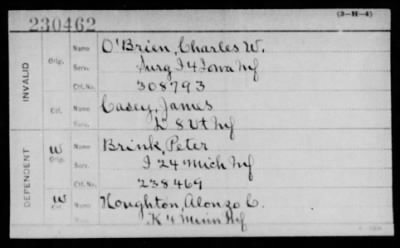 230462
(3-H-4)
INVALID
Orig.
Name O'Brien, Charles W.
Serv. Surg I 4 Iowa Inf
Ctf. No. 308793
Ctf.
Name Casey, James
Serv. K 8 Vt Inf
DEPENDENT
W
Orig.
Name Brink, Peter
Serv. I 24 Mich Inf
Ctf. No. 238469
W
Ctf.
Name Houghton, Alonzo C.
Serv. K 4 Minn Inf